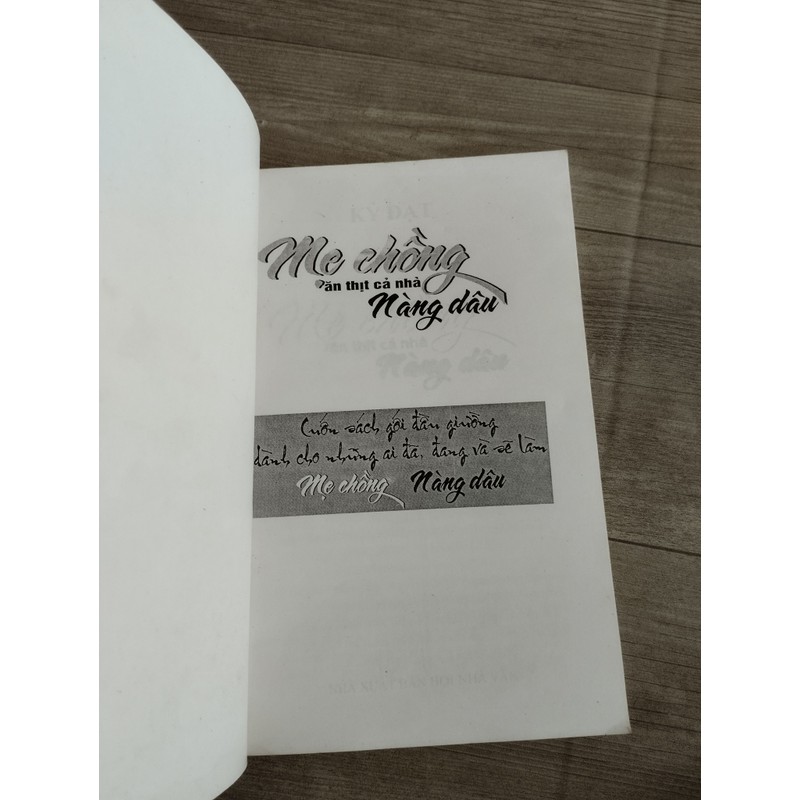 Mẹ chồng
ăn thịt cả nhà
Nàng dâu
Cuốn sách gối đầu giường
dành cho những ai đã, đang và sẽ làm
Mẹ chồng Nàng dâu
KỲ ĐẠT
Mẹ chồng
ăn thịt cả nhà
Nàng dâu